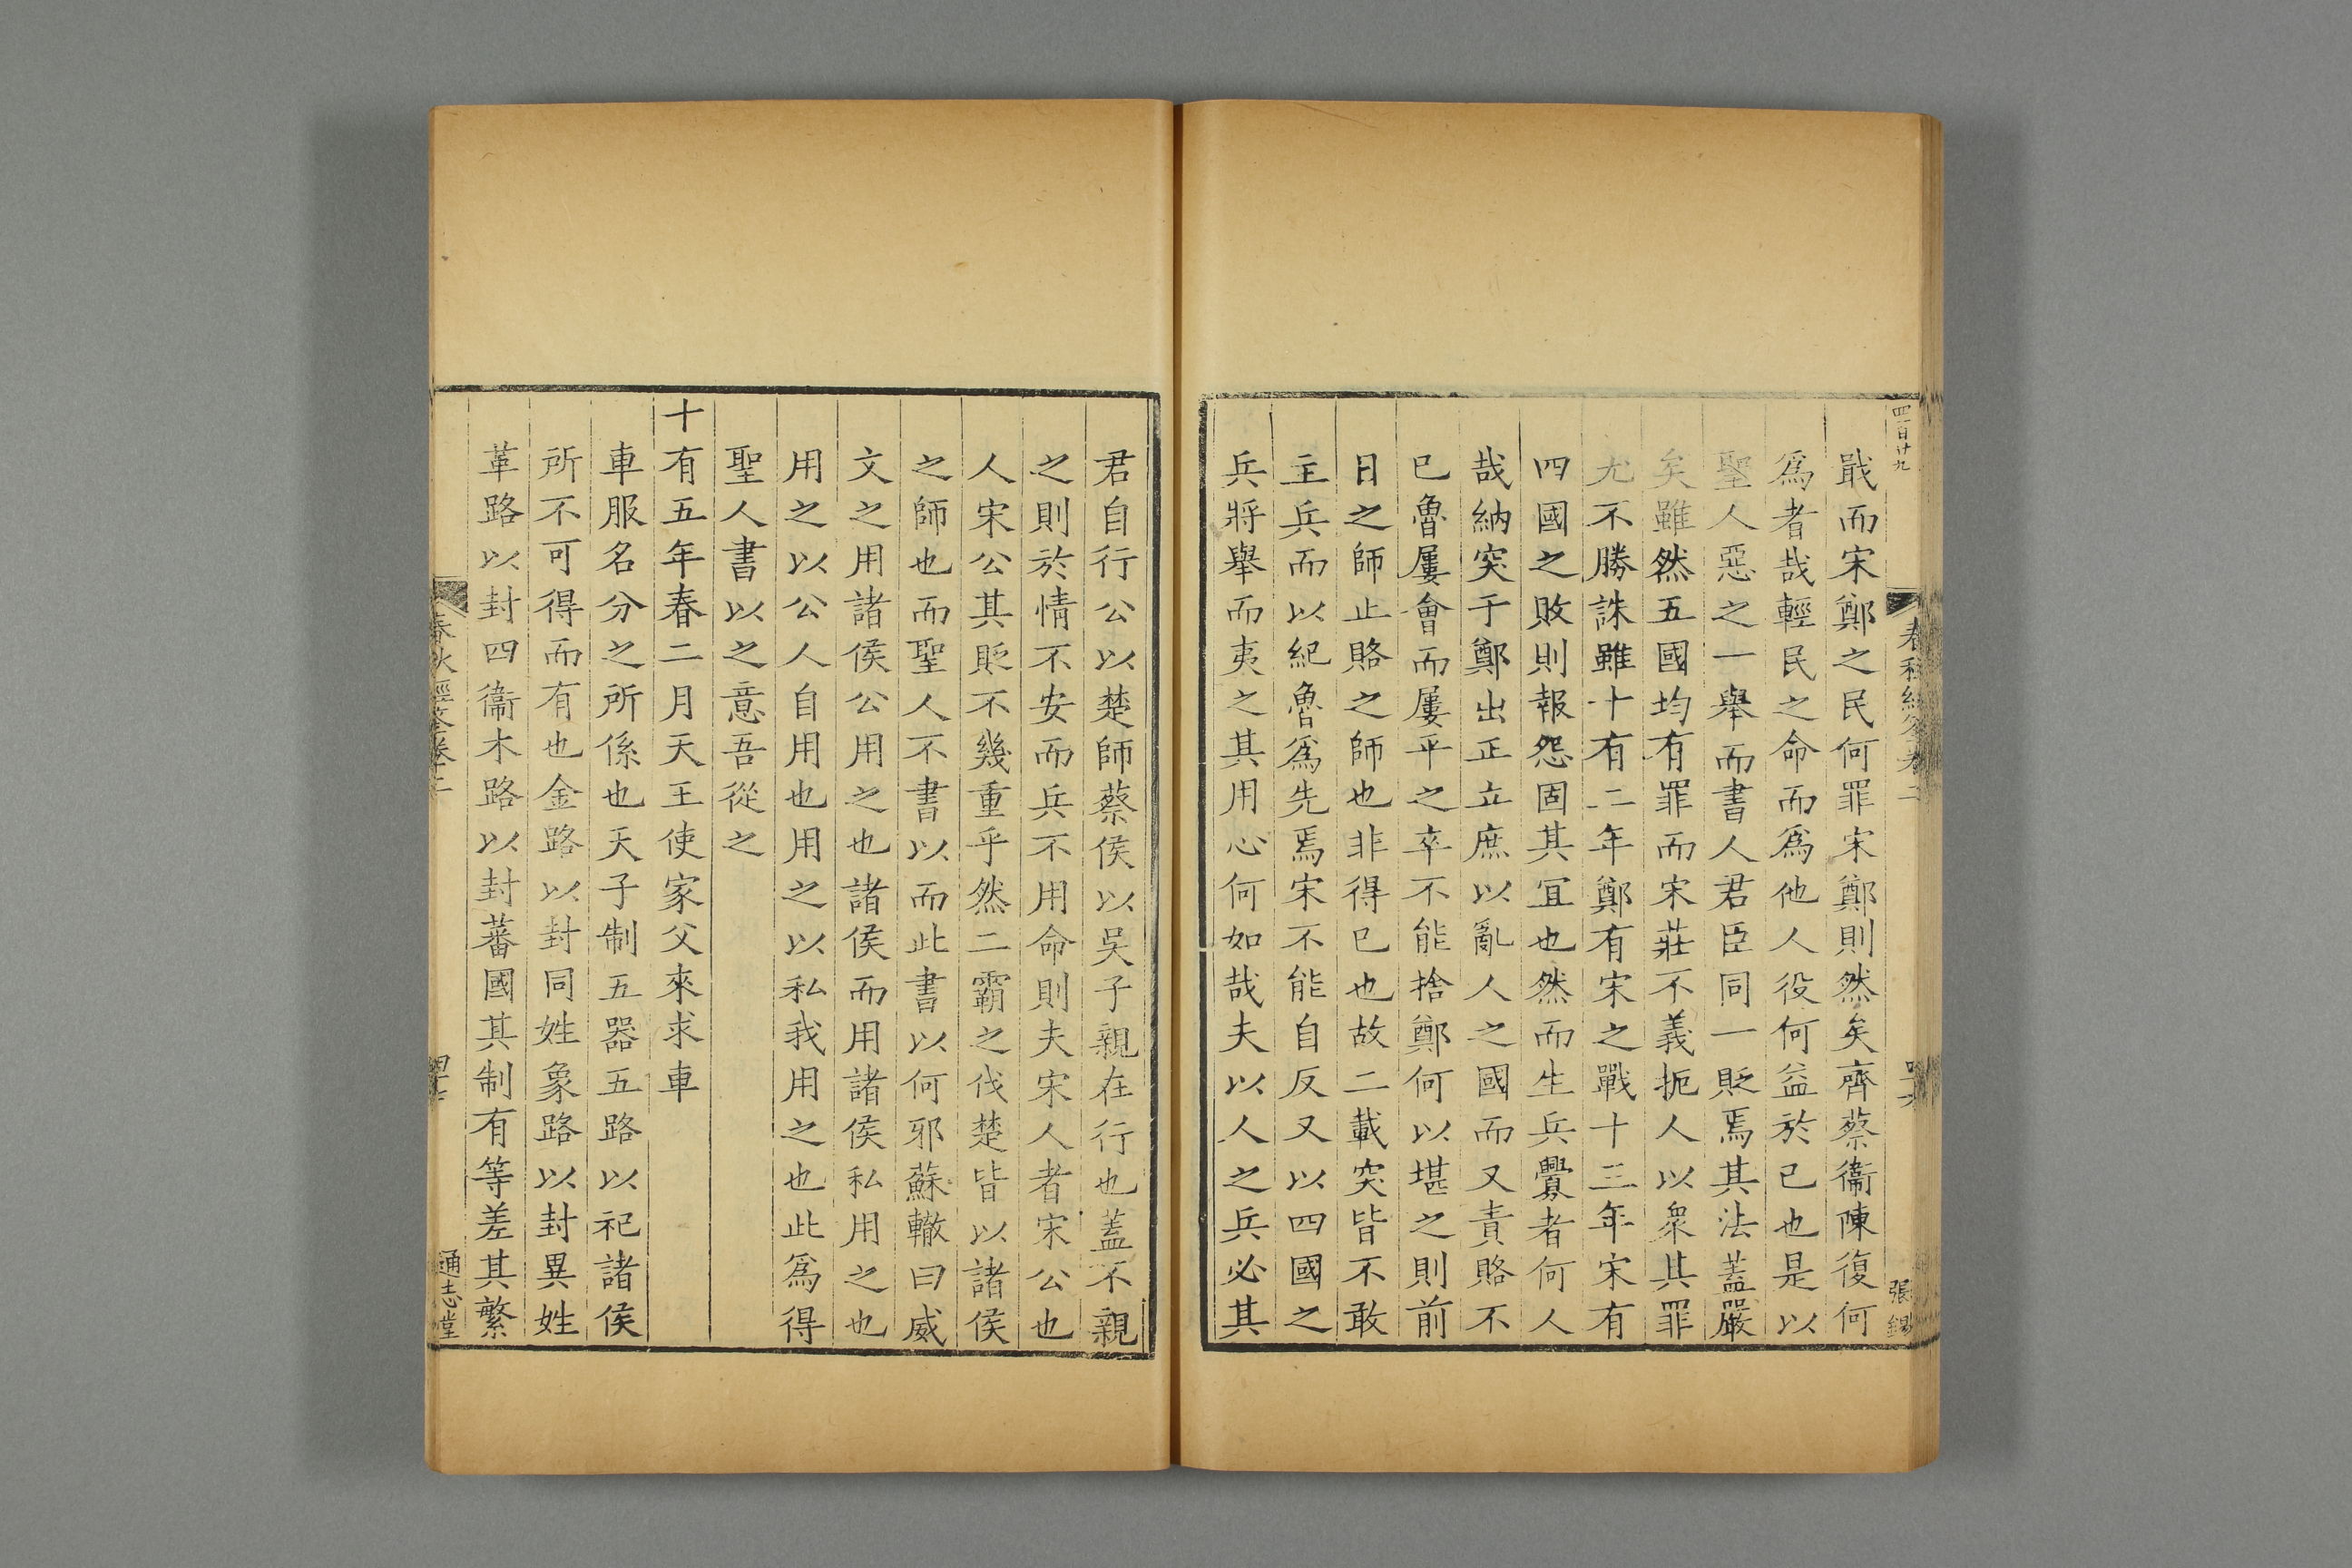 四百廿九
張
戢而宋鄭之民何罪宋鄭則然矣齊蔡衞陳復何
爲者哉輕民之命而爲他人役何益於已也是以
聖人惡之一舉而書人君臣同一貶焉其法蓋嚴
矣雖然五國均有罪而宋莊不義扼人以衆其罪
尤不勝誅雖十有二年鄭有宋之戰十三年宋有
四國之敗則報怨固其宜也然而生兵釁者何人
哉納突于鄭出正立庶以亂人之國而又責賂不
已魯屢會而屢平之卒不能捨鄭何以堪之則前
日之師止賂之師也非得已也故二載突皆不敢
主兵而以紀魯爲先焉宋不能自反又以四國之
兵將舉而夷之其用心何如哉夫以人之兵必其
君自行公以楚師蔡侯以吳子親在行也蓋不親
之則於情不安而兵不用命則夫宋人者宋公也
人宋公其貶不幾重乎然二霸之伐楚皆以諸侯
之師也而聖人不書以而此書以何邪蘇轍曰威
文之用諸侯公用之也諸侯而用諸侯私用之也
用之以公人自用也用之以私我用之也此爲得
聖人書以之意吾從之
十有五年春二月天王使家父來求車
車服名分之所係也天子制五器五路以祀諸侯
所不可得而有也金路以封同姓象路以封異姓
革路以封四衞木路以封蕃國其制有等差其繁
春秋經筌卷二
通志堂